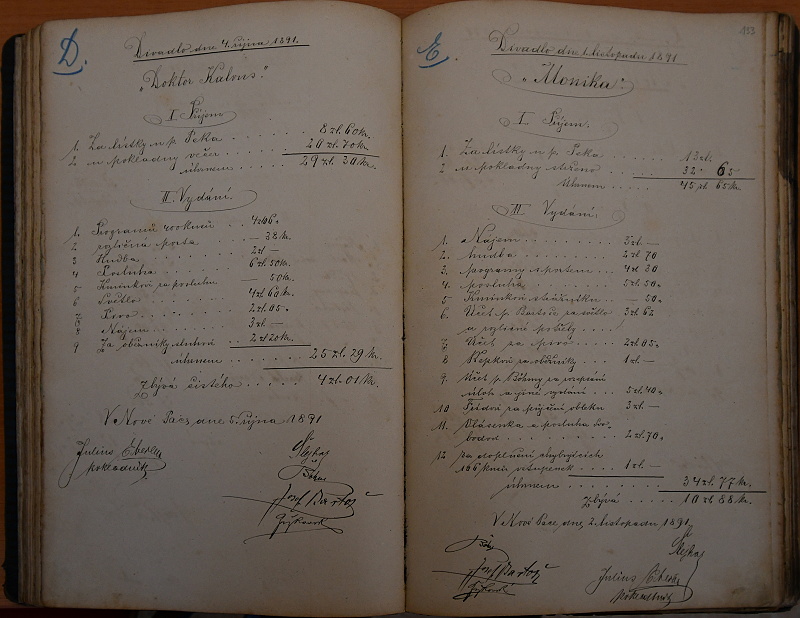 D.
Divadlo dne 4. října 1891.
„Doktor Kalous."
I. Příjem
1. Za lístky u p. Peka . . . . . 8 zl. 60 kr.
2. u pokladny večer . . . . . 20 zl. 70 kr.
úhrnem . . . . . 29 zl. 30 kr.
II. Vydání.
1. Programů 400 kusů . . 4 zl 06
2. různá porta . . — 38 kr.
3 Hudba . . . . 2 zl —
4 Posluha . . . . 6 zl. 50 kr.
5 za posluhu — 50 kr.
6 Světlo . . . . 4 zl 60 kr.
7 Pivo . . . . 2 zl. 05
8 Nájem . . . . 3 zl. —
9 Za oběžníky sluhovi . . 2 zl 20 kr.
úhrnem . . . 25 zl. 29 kr.
Zbývá čistého . . . . . 4 zl. 01 kr.
V Nové Pace, dne 5. října 1891
Julius
pokladník
Josef Bartoš
153
E.
Divadlo dne 1. listopadu 1891
„Monika".
I. Příjem.
1. Za lístky u p. Peka . . . . 13 zl.
2 u pokladny . . . . 32 65
Úhrnem . . . . 45 zl 65 kr.
II. Vydání.
1. Nájem . . . . . . . 3 zl —
2. hudba . . . . . . . 2 zl 70
3. programy s portem . . . 4 zl 30
4. posluha . . . . . 5 zl. 50
5 . . — 50
6. Účet p. Bartoše za světlo 3 zl 62
a různé potřeby . . . .
7. Účet za pivo . . . . 2 zl 05
8 za oběžníky . . . 1 zl. —
9. Účet p. Böhmy za rozepsání
úloh a jiné vydání . . . 5 zl. 40
10 za půjčení obleku 3 zl. —
11. Vlásenka a posluha
. . . . . . 2 zl. 70
12 za doplnění chybných
166 kusů vstupenek . . . 1 zl. —
úhrnem . . . . . 34 zl. 77 kr.
Zbývá . . . . . 10 zl. 88 kr.
V Nové Pace, dne 2. listopadu 1891.
Josef Bartoš
Julius
pokladník